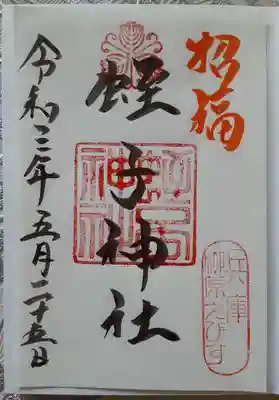 招福
蛭子神社
令和三年五月二十五日
蛭子神社
兵庫
柳原えびす